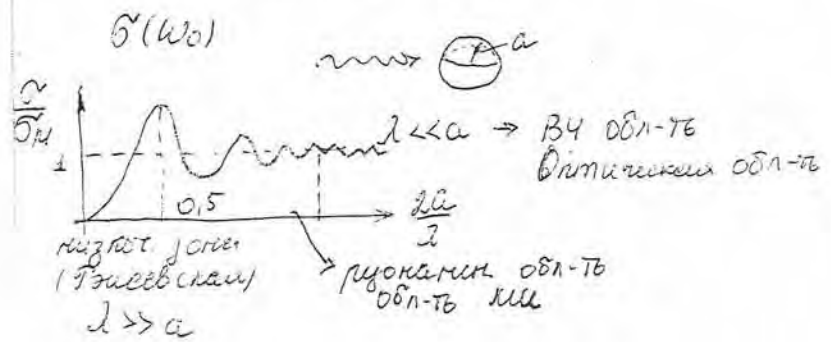 σ(ω₀)
a
σ/σм
1
λ<<a → ВЧ обл-ть
Оптическая обл-ть
0,5
2a/λ
низкоч. зона
(Рэлеевская)
λ >> a
резонансн обл-ть
обл-ть МИ